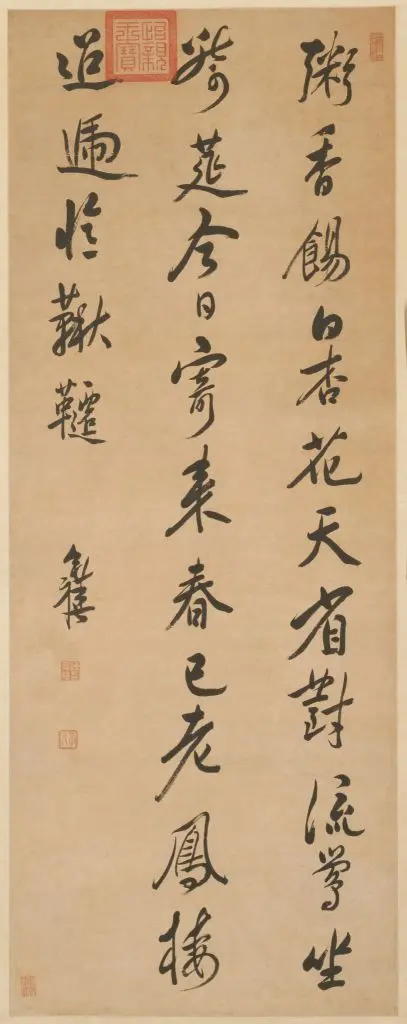 粥香餳白杏花天省對流鶯坐
綺筵今日寄来春已老鳳樓
迢遞憶鞦韆
奕禧
怡親王寶